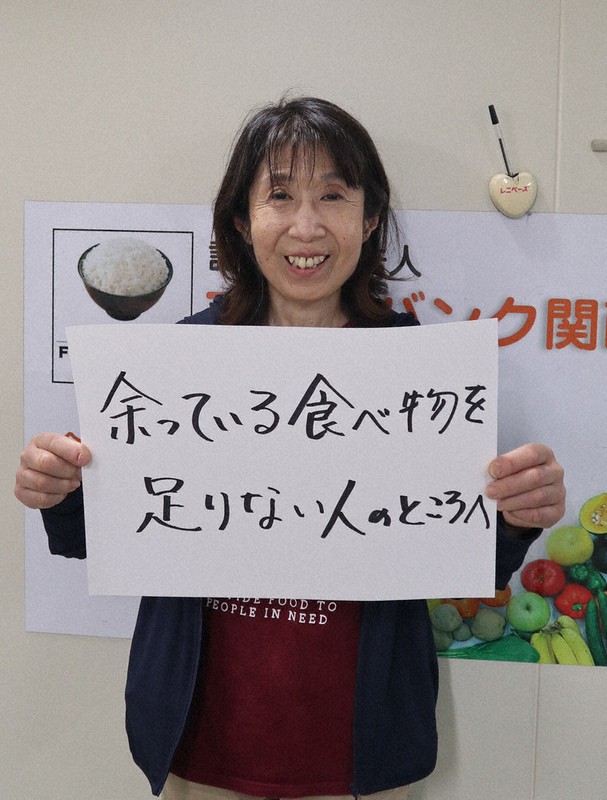 しこベーズ
人
バンク関
余っている食べ物を
足りない人のところへ
FOOD TO
PEOPLE IN NEED